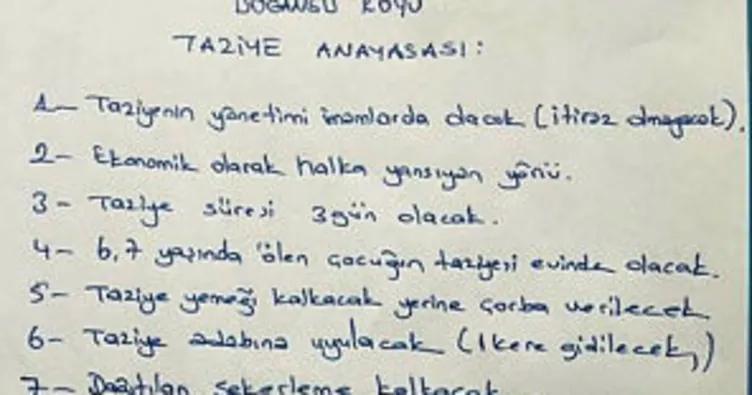 DOĞANSU KÖYÜ
TAZİYE ANAYASASI:
1- Taziyenin yönetimi imamlarda olacak (itiraz olmayacak).
2- Ekonomik olarak halka yansıyan yönü.
3- Taziye süresi 3 gün olacak.
4- 6,7 yaşında ölen çocuğun taziyesi evinde olacak.
5- Taziye yemeği kalkacak yerine çorba verilecek
6- Taziye adabına uyulacak (1 kere gidilecek,)
7- Dağıtılan şekerleme kalkacak